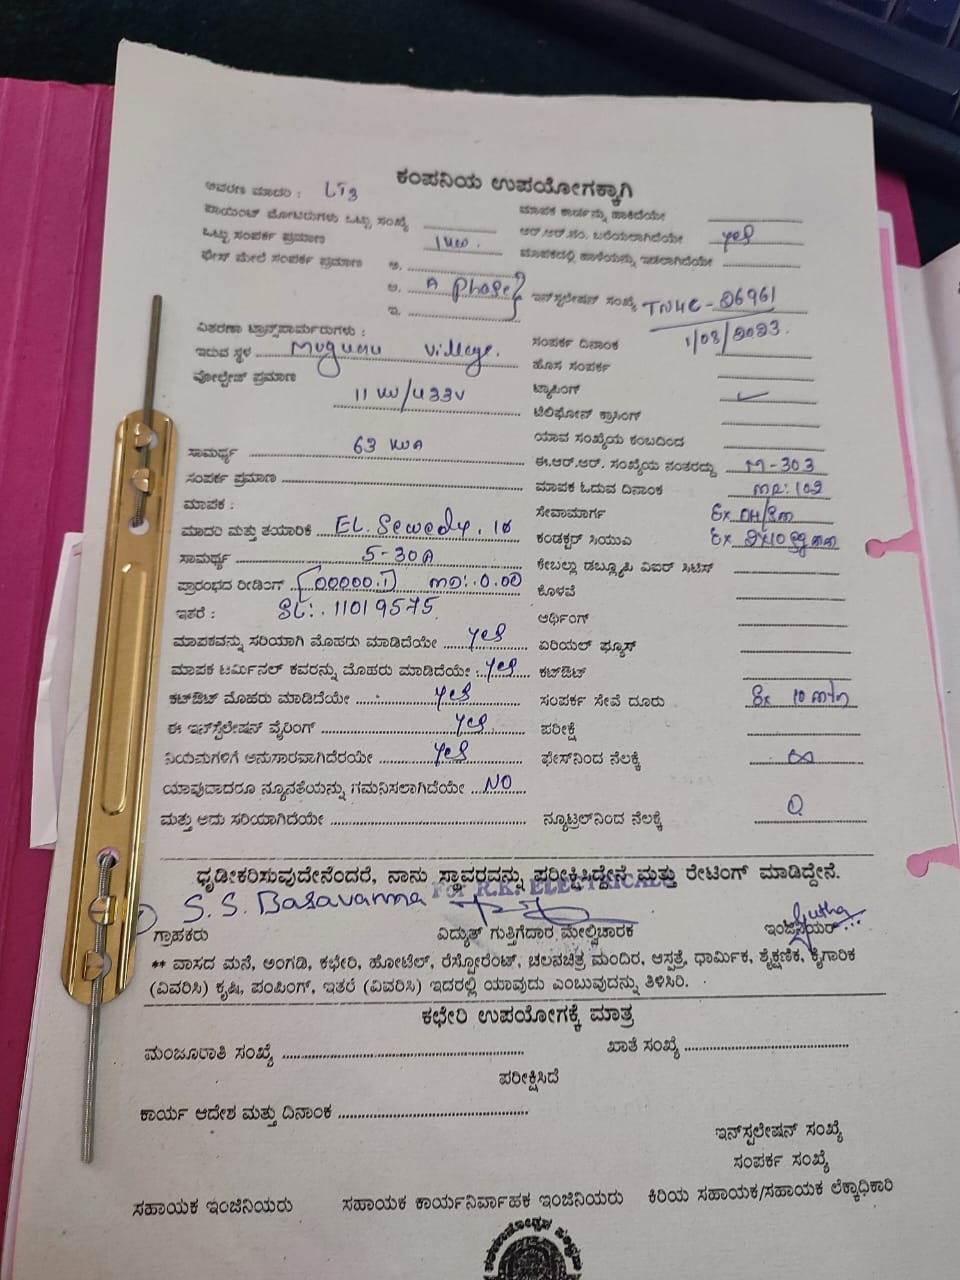 ಕಂಪನಿಯ ಉಪಯೋಗಕ್ಕಾಗಿ
ಆವರಣ ಮಾದರಿ : LT3
ಪಾಯಿಂಟ್ ಮೋಟರುಗಳು ಒಟ್ಟು ಸಂಖ್ಯೆ ಮಾಪಕ ಕಾರ್ಡನ್ನು ಹಾಕಿದೆಯೇ
ಒಟ್ಟು ಸಂಪರ್ಕ ಪ್ರಮಾಣ 1KW. ಆರ್.ಆರ್.ನಂ. ಬರೆಯಲಾಗಿದೆಯೇ yes
ಫೇಸ್ ಮೇಲೆ ಸಂಪರ್ಕ ಪ್ರಮಾಣ ಅ. ಮಾಪಕದಲ್ಲಿ ಹಾಳೆಯನ್ನು ಇಡಲಾಗಿದೆಯೇ
ಆ. A phase ಇನ್‌ಸ್ಟಲೇಷನ್ ಸಂಖ್ಯೆ TNHC-26961
ಇ.
ವಿತರಣಾ ಟ್ರಾನ್ಸ್‌ಫಾರ್ಮರುಗಳು : ಸಂಪರ್ಕ ದಿನಾಂಕ 1/03/2023.
ಇರುವ ಸ್ಥಳ village. ಹೊಸ ಸಂಪರ್ಕ
ವೋಲ್ಟೇಜ್ ಪ್ರಮಾಣ 11 KV/433V ಟ್ಯಾಪಿಂಗ್ ✓
ಟೆಲಿಫೋನ್ ಕ್ರಾಸಿಂಗ್
ಯಾವ ಸಂಖ್ಯೆಯ ಕಂಬದಿಂದ
ಸಾಮರ್ಥ್ಯ 63 KVA ಈ.ಆರ್.ಆರ್. ಸಂಖ್ಯೆಯ ನಂತರದ್ದು M-303
ಸಂಪರ್ಕ ಪ್ರಮಾಣ ಮಾಪಕ ಓದುವ ದಿನಾಂಕ
ಮಾಪಕ : ಸೇವಾಮಾರ್ಗ Ex OH/
ಮಾದರಿ ಮತ್ತು ತಯಾರಿಕೆ EL. Sewedy. 1ø ಕಂಡಕ್ಟರ್ ಸಿಯುವಿ Ex 2x10
ಸಾಮರ್ಥ್ಯ 5-30A ಕೇಬಲ್ಲು ಡಬ್ಲ್ಯೂಪಿ ವಿಐರ್ ಸಿಟಿಸ್
ಪ್ರಾರಂಭದ ರೀಡಿಂಗ್ 00000.1 MD:.0.00 ಕೊಳವೆ
ಇತರೆ : SL:. 11019575 ಅರ್ಥಿಂಗ್
ಮಾಪಕವನ್ನು ಸರಿಯಾಗಿ ಮೊಹರು ಮಾಡಿದೆಯೇ yes ಏರಿಯಲ್ ಫ್ಯೂಸ್
ಮಾಪಕ ಟರ್ಮಿನಲ್ ಕವರನ್ನು ಮೊಹರು ಮಾಡಿದೆಯೇ : yes ಕಟ್‌ಔಟ್
ಕಟ್‌ಔಟ್ ಮೊಹರು ಮಾಡಿದೆಯೇ yes ಸಂಪರ್ಕ ಸೇವೆ ದೂರು Ex 10 mtr
ಈ ಇನ್‌ಸ್ಟಲೇಷನ್ ವೈರಿಂಗ್ yes ಪರೀಕ್ಷೆ
ನಿಯಮಗಳಿಗೆ ಅನುಸಾರವಾಗಿದೆರಯೇ yes ಫೇಸ್‌ನಿಂದ ನೆಲಕ್ಕೆ ∞
ಯಾವುದಾದರೂ ನ್ಯೂನತೆಯನ್ನು ಗಮನಿಸಲಾಗಿದೆಯೇ NO
ಮತ್ತು ಅದು ಸರಿಯಾಗಿದೆಯೇ ನ್ಯೂಟ್ರಲ್‌ನಿಂದ ನೆಲಕ್ಕೆ 0
ಧೃಡೀಕರಿಸುವುದೇನೆಂದರೆ, ನಾನು ಸ್ಥಾವರವನ್ನು ಪರೀಕ್ಷಿಸಿದ್ದೇನೆ ಮತ್ತು ರೇಟಿಂಗ್ ಮಾಡಿದ್ದೇನೆ.
For R.K. ELECTRICALS
S. S. Basavanna
ಗ್ರಾಹಕರು ವಿದ್ಯುತ್ ಗುತ್ತಿಗೆದಾರ ಮೇಲ್ವಿಚಾರಕ ಇಂಜಿನಿಯರ್
** ವಾಸದ ಮನೆ, ಅಂಗಡಿ, ಕಛೇರಿ, ಹೋಟೆಲ್, ರೆಸ್ಟೋರೆಂಟ್, ಚಲನಚಿತ್ರ ಮಂದಿರ, ಆಸ್ಪತ್ರೆ, ಧಾರ್ಮಿಕ, ಶೈಕ್ಷಣಿಕ, ಕೈಗಾರಿಕ
(ವಿವರಿಸಿ) ಕೃಷಿ, ಪಂಪಿಂಗ್, ಇತರೆ (ವಿವರಿಸಿ) ಇದರಲ್ಲಿ ಯಾವುದು ಎಂಬುವುದನ್ನು ತಿಳಿಸಿರಿ.
ಕಛೇರಿ ಉಪಯೋಗಕ್ಕೆ ಮಾತ್ರ
ಮಂಜೂರಾತಿ ಸಂಖ್ಯೆ ಖಾತೆ ಸಂಖ್ಯೆ
ಪರೀಕ್ಷಿಸಿದೆ
ಕಾರ್ಯ ಆದೇಶ ಮತ್ತು ದಿನಾಂಕ
ಇನ್‌ಸ್ಟಲೇಷನ್ ಸಂಖ್ಯೆ
ಸಂಪರ್ಕ ಸಂಖ್ಯೆ
ಸಹಾಯಕ ಇಂಜಿನಿಯರು ಸಹಾಯಕ ಕಾರ್ಯನಿರ್ವಾಹಕ ಇಂಜಿನಿಯರು ಕಿರಿಯ ಸಹಾಯಕ/ಸಹಾಯಕ ಲೆಕ್ಕಾಧಿಕಾರಿ